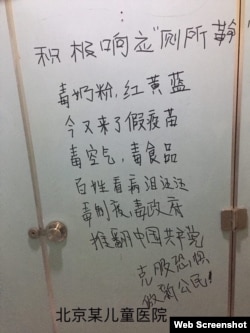 积极响应"厕所革命"
毒奶粉,红黄蓝
今又来了假疫苗
毒空气,毒食品
百姓看病泪涟涟
毒制度,毒政府
推翻中国共产党
克服恐惧
做新公民!
北京某儿童医院
Web Screenshot